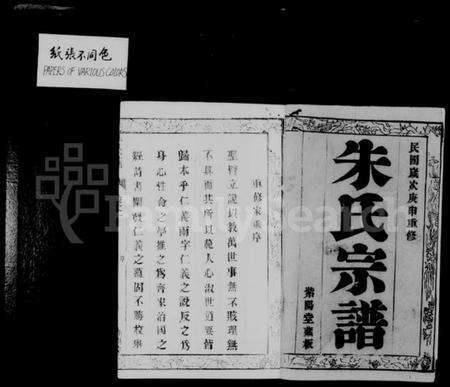 紙張不同色
PAPERS OF VARIOUS COLORS
民國歲次庚申重修
朱氏宗譜
紫陽堂藏板
重修家乘序
聖賢立說以教萬世事無不賅理無
不具而其所以範人心淑世道要皆
歸本乎仁義兩字仁義之說反之為
身心性命之學推之為齊家治國之
經
FamilySearch